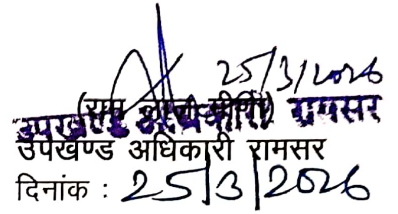 25/3/2026
(राम
उपखण्ड अधिकारी रामसर
उपखण्ड अधिकारी रामसर
दिनांक : 25/3/2026